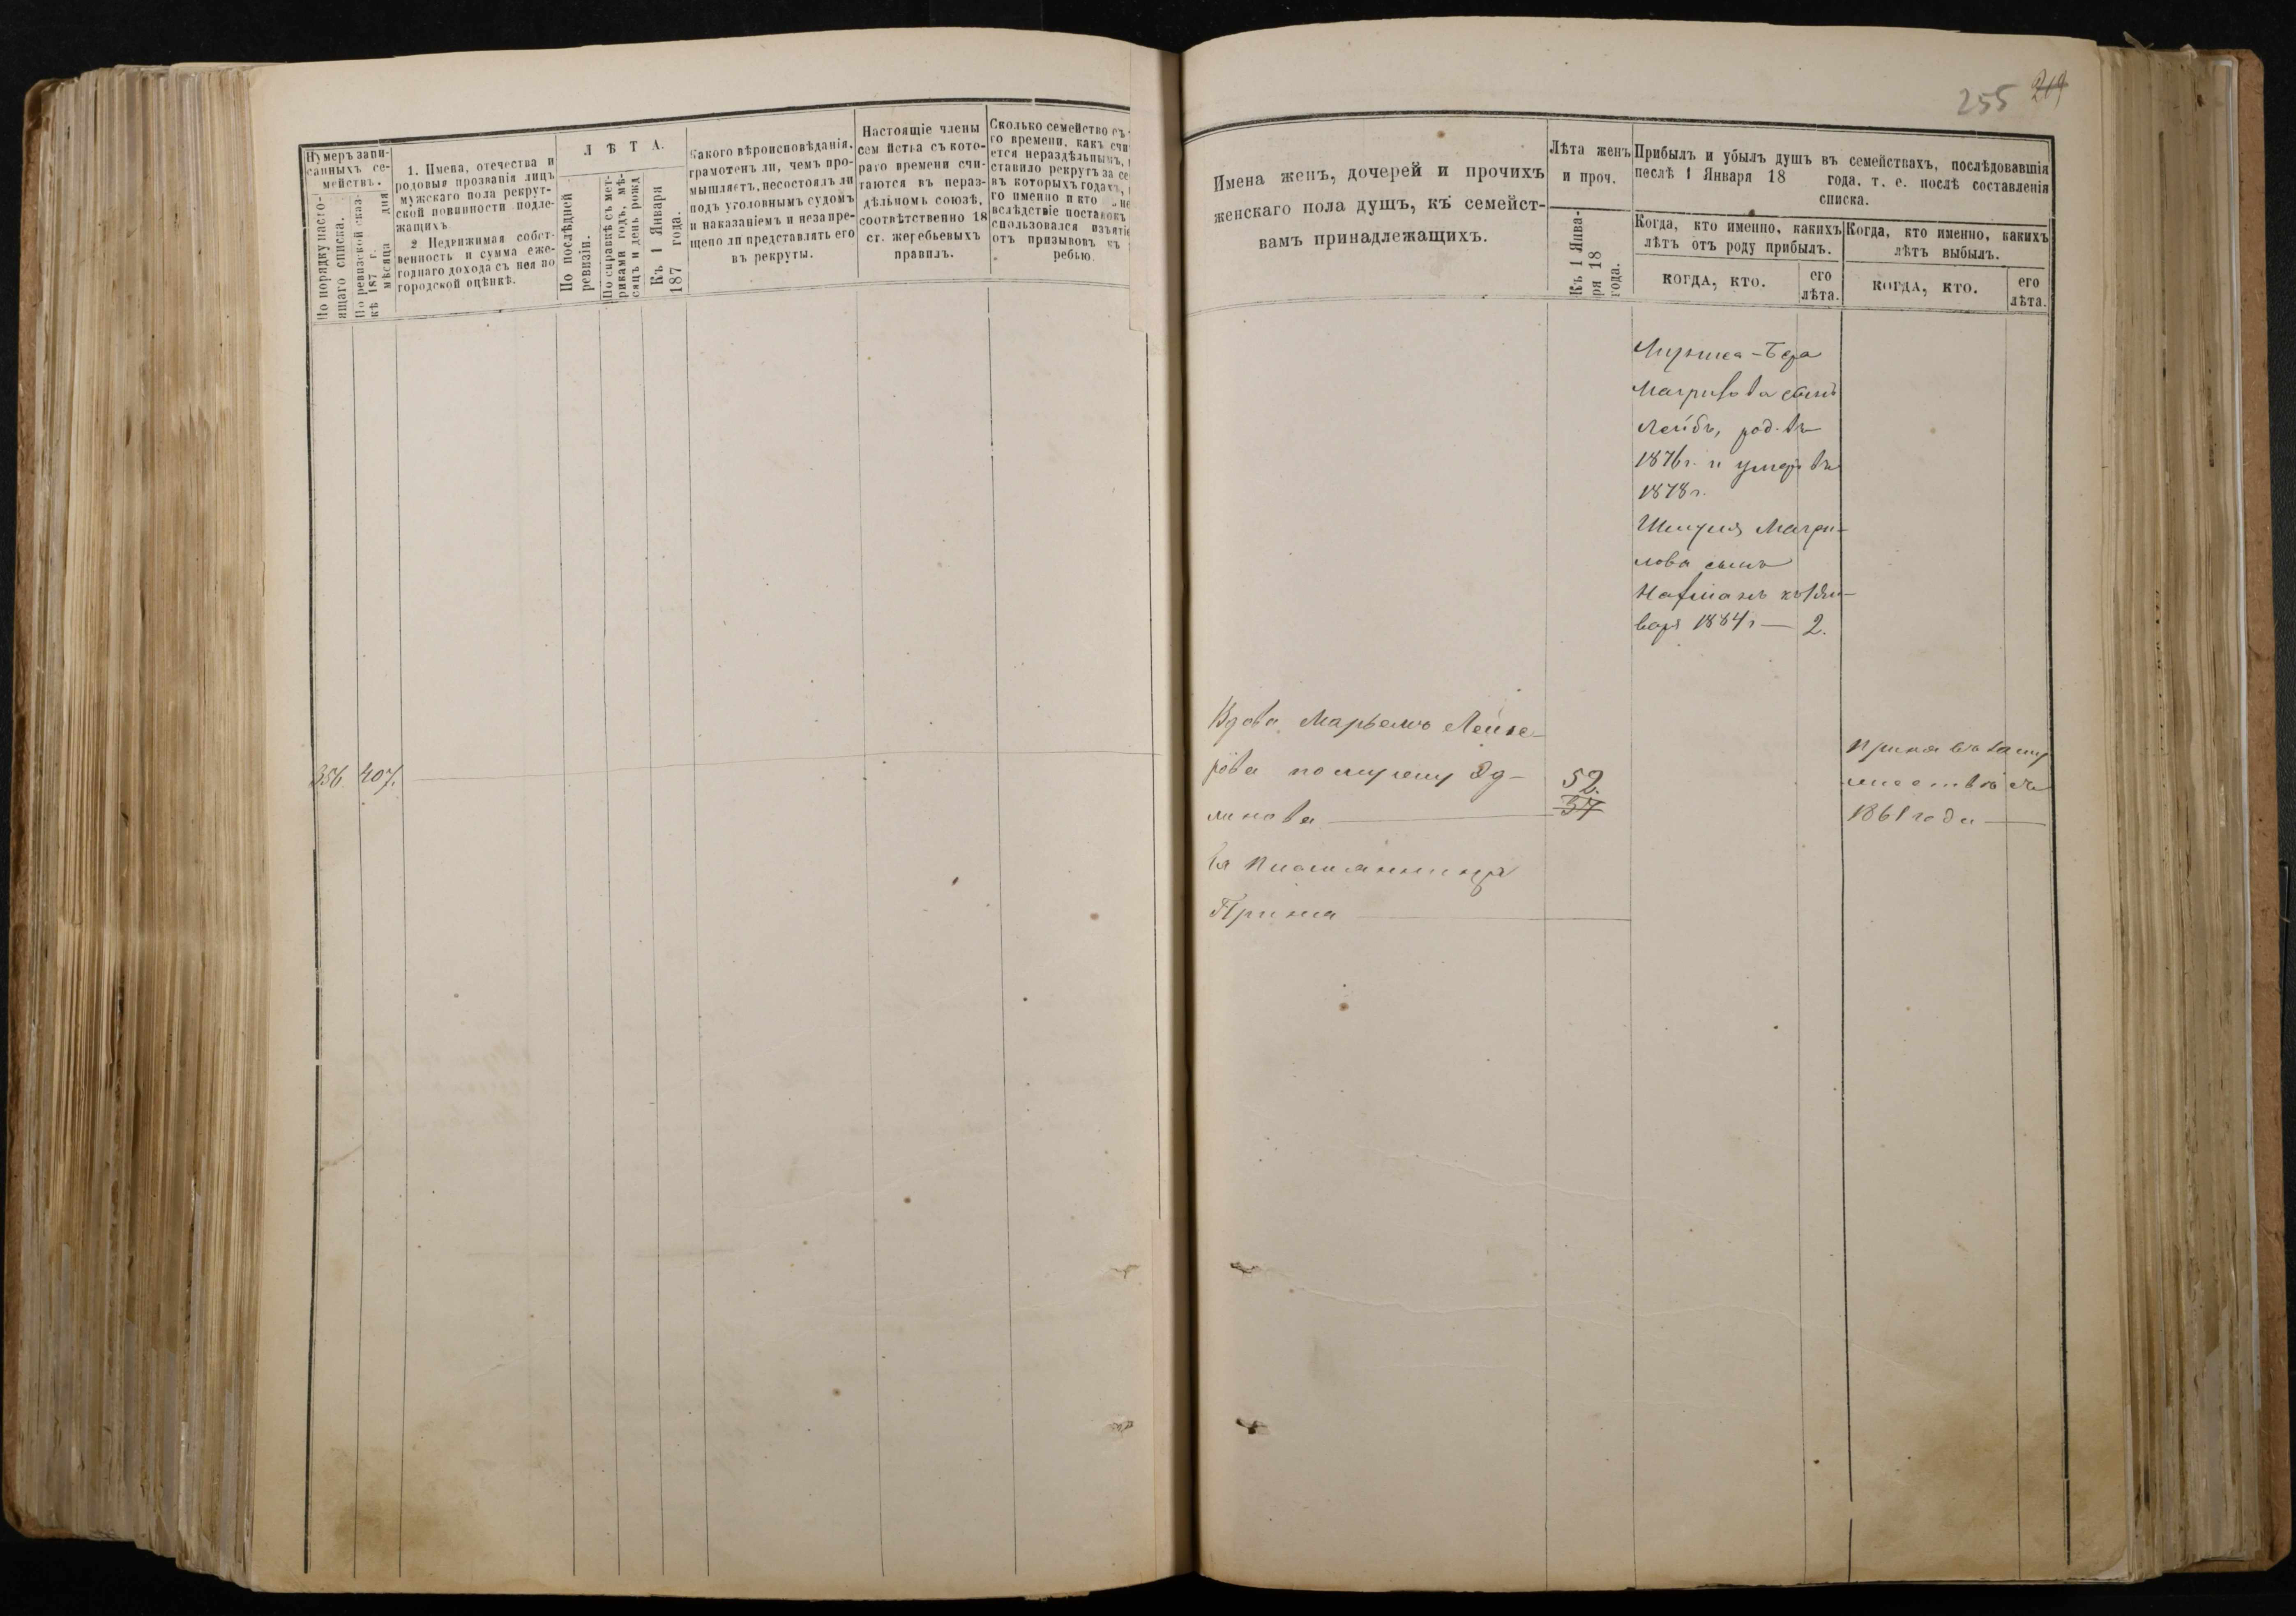 255 219
Нумеръ запи-
санныхъ се-
мействъ.
По порядку насто-
ящаго списка.
По ревизской сказ-
кѣ 187 г. мѣсяца дня
1. Имена, отечества и
родовыя прозванія лицъ
мужскаго пола рекрут-
ской повинности подле-
жащихъ.
2 Недвижимая собст-
венность и сумма еже-
годнаго дохода съ нея по
городской оцѣнкѣ.
ЛѢТА.
По послѣдней
ревизіи.
По справкѣ съ мет-
риками годъ, мѣ-
сяцъ и день рожд
Къ 1 Января
187 года.
Какого вѣроисповѣданія,
грамотенъ ли, чемъ про-
мышляетъ, несостоялъ ли
подъ уголовнымъ судомъ
и наказаніемъ и незапре-
щено ли представлять его
въ рекруты.
Настоящіе члены
сем йства съ кото-
раго времени счи-
таются въ нераз-
дѣльномъ союзѣ,
соотвѣтственно 18
ст. жеребьевыхъ
правилъ.
Сколько семейство съ
го времени, какъ счи
ется нераздѣльнымъ,
ставило рекрутъ за се
въ которыхъ годахъ,
го именно и кто не
вслѣдствіе поставокъ
спользовался изъятіе
отъ призывовъ къ
ребью.
Имена женъ, дочерей и прочихъ
женскаго пола душъ, къ семейст-
вамъ принадлежащихъ.
Лѣта женъ
и проч.
Къ 1 Янва-
ря 18
года.
Прибылъ и убылъ душъ въ семействахъ, послѣдовавшія
песлѣ 1 Января 18 года. т. е. послѣ составленія
списка.
Когда, кто именно, какихъ
лѣтъ отъ роду прибылъ.
КОГДА, КТО.
его
лѣта.
Когда, кто именно, какихъ
лѣтъ выбылъ.
КОГДА, КТО.
его
лѣта.
сынъ
Лейбъ, род. въ
1876 г. и умеръ въ
1878 г.
сынъ
къ 1 Ян-
варя 1884 г — 2.
356 407.
Вдова Марьемъ Лейзе-
рова по мужу Эд-
52.
37
1861 года
Ея племянница